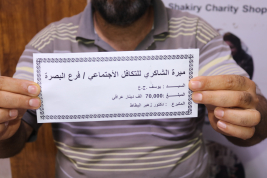 Shakiry Charity Shop
مبرة الشاكري للتكافل الاجتماعي / فرع البصرة
يوسف ع.ع
المبلغ : 70,000 الف دينار عراقي
المتبرع : دكتور زهير البطاط